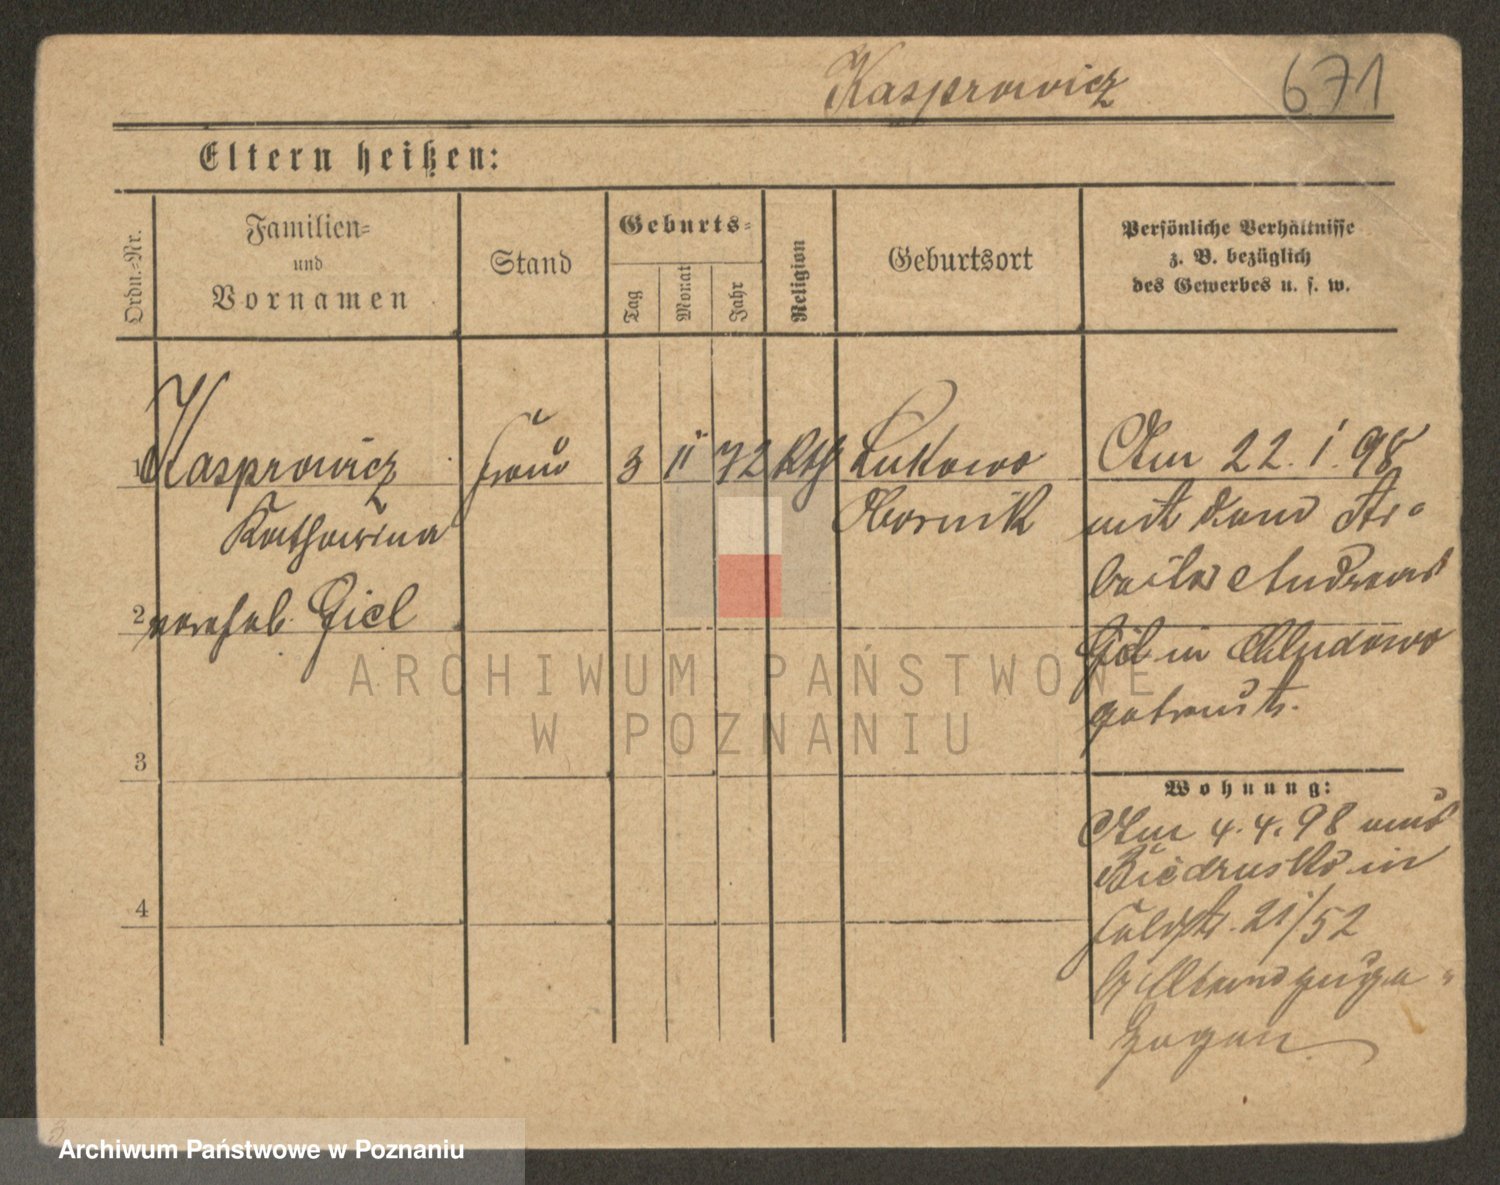 Kasprowicz 671
Eltern heißen:
Ordn.-Nr.
Familien-
und
Vornamen
Stand
Geburts-
Tag
Monat
Jahr
Religion
Geburtsort
Persönliche Verhältnisse
z. B. bezüglich
des Gewerbes u. s. w.
1 Kasprowicz Frau 3 11 72 Kth Lukowo
Katharina Obornik
2 verehel. Giel
3
4
Am 22. 1. 98
mit dem Ar-
beiter Andreas
Giel in Chludowo
getraut.
Wohnung:
Am 4. 4. 98 aus
Biedrusko in
Feldstr. 21/52
zuge-
zogen
ARCHIWUM PAŃSTWOWE
W POZNANIU
Archiwum Państwowe w Poznaniu